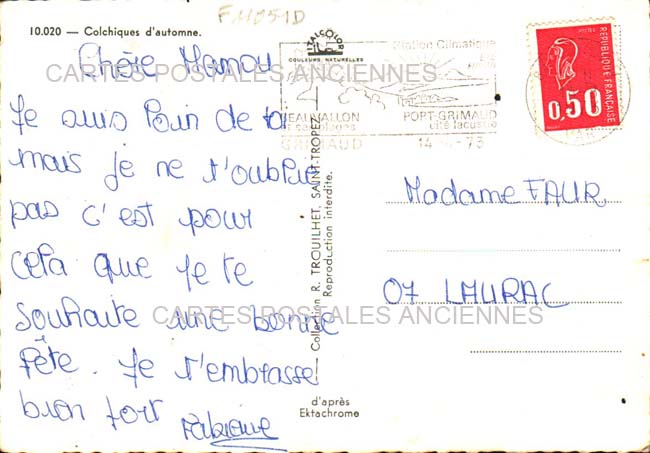 FM051D
10.020 — Colchiques d'automne.
Chère Mamou
Je suis loin de ta
mais je ne t'oublie
pas c'est pour
cela que je te
souhaite une bonne
fête. Je t'embrasse
bien fort Fabienne
ITALCOLOR
COULEURS NATURELLES
Station Climatique
BEAUVALLON
ses plages
PORT-GRIMAUD
cité lacustre
GRIMAUD
REPUBLIQUE FRANÇAISE
0,50
Collection R. TROUILHET, SAINT-TROPEZ
Reproduction interdite.
Madame FAUR
07 LAURAC
d'après
Ektachrome
CARTES POSTALES ANCIENNES
CARTES POSTALES ANCIENNES